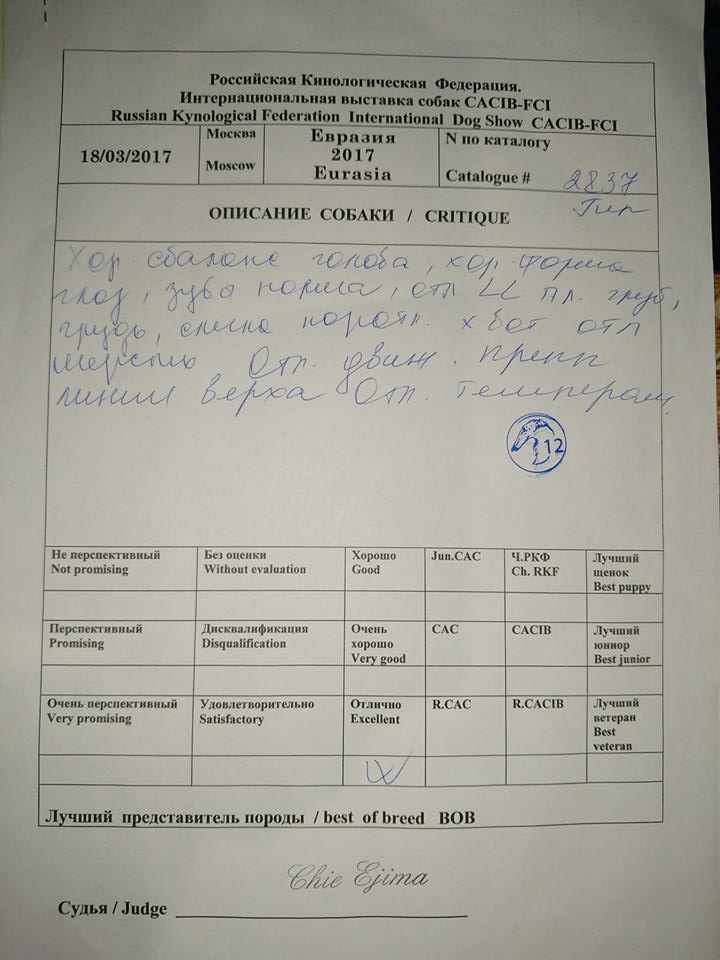 Российская Кинологическая Федерация.
Интернациональная выставка собак CACIB-FCI
Russian Kynological Federation International Dog Show CACIB-FCI
18/03/2017
Москва
Moscow
Евразия
2017
Eurasia
N по каталогу
Catalogue # 2837
ОПИСАНИЕ СОБАКИ / CRITIQUE
Хор. сбаланс голова, хор. форма
глаз, зубы норма, отл LL пл. груб,
грудь, спина коротк. хвост отл
шерсть Отл. движ. крепк
линии верха Отл. темперам.
12
Не перспективный
Not promising
Без оценки
Without evaluation
Хорошо
Good
Jun.CAC
Ч.РКФ
Ch. RKF
Лучший
щенок
Best puppy
Перспективный
Promising
Дисквалификация
Disqualification
Очень
хорошо
Very good
CAC
CACIB
Лучший
юниор
Best junior
Очень перспективный
Very promising
Удовлетворительно
Satisfactory
Отлично
Excellent
R.CAC
R.CACIB
Лучший
ветеран
Best
veteran
Лучший представитель породы / best of breed BOB
Chie Ejima
Судья / Judge